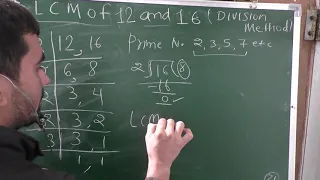 LCM of 12 and 16 (Division Method)
12, 16
Prime N. 2, 3, 5, 7 etc
6, 8
2 16 (8
3, 4
16
0
2 3, 2
LCM
3 3, 1
1, 1